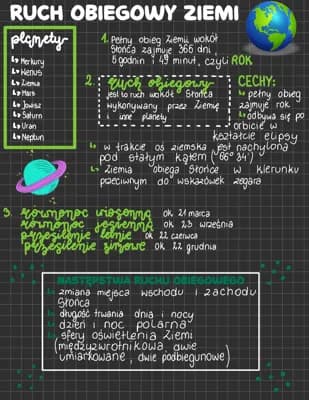 RUCH OBIEGOWY ZIEMI
planety
↳ Merkury
↳ Wenus
↳ Ziemia
↳ Mars
↳ Jowisz
↳ Saturn
↳ Uran
↳ Neptun
1. Pełny obieg Ziemii wokół
Słońca zajmuje 365 dni,
5 godnin i 49 minut, czyli ROK
2. Ruch obiegowy
jest to ruch wokół Słońca
wykonywany przez Ziemię
i inne planety
CECHY:
↳ pełny obieg
zajmuje rok
↳ odbywa się po
orbicie w
kształcie elipsy
↳ w trakcie oś ziemska jest nachylona
pod stałym kątem (66° 34')
↳ Ziemia obiega Słońce w kierunku
przeciwnym do wskazówek zegara
3. równonoc wiosenną ok 21 marca
równonoc jesienną ok 23 września
przesilenie letnie ok 22 czerwca
przesilenie zimowe ok 22 grudnia
NASTĘPSTWA RUCHU OBIEGOWEGO
↳ zmiana miejsca wschodu i zachodu
Słońca
↳ długość trwania dnia i nocy
↳ dzień i noc polarna
↳ sfery oświetlenia Ziemi
(międzyzwrotnikowa, dwie
umiarkowane, dwie podbiegunowe)